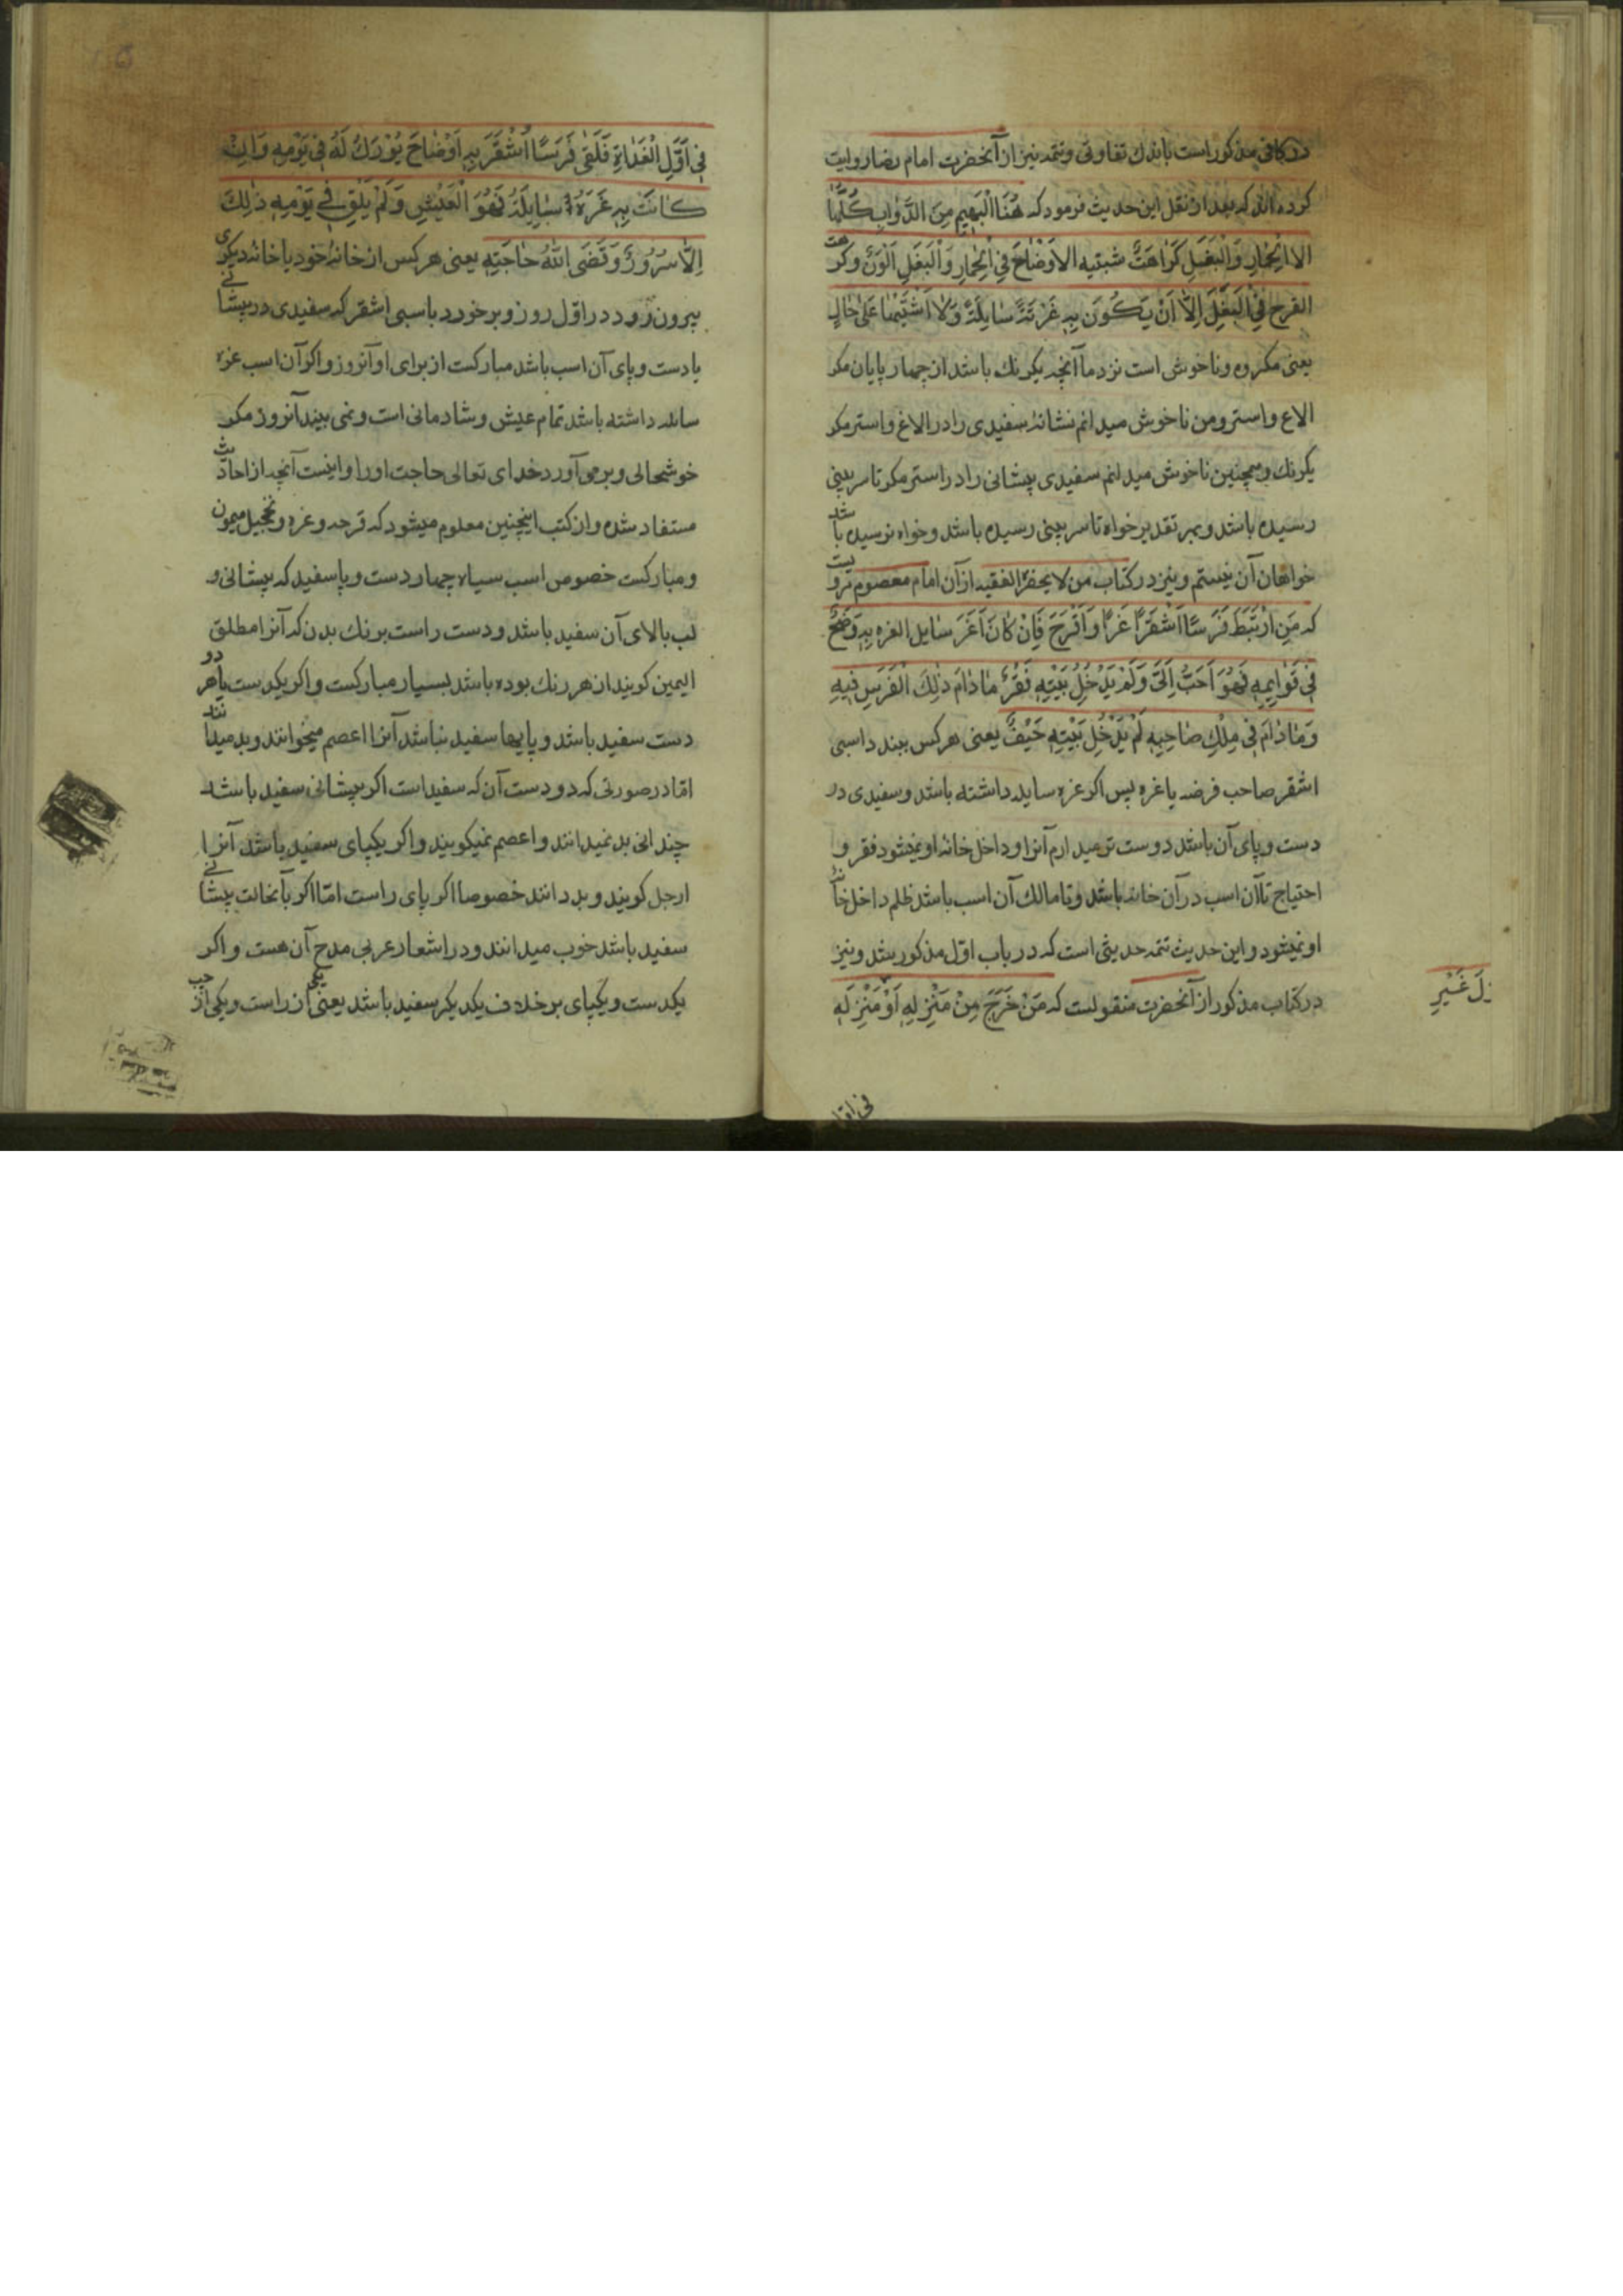 در کافی مذکور است باندک تفاوتی و تتمه نیز از آنحضرت امام رضا روایت
کرده اند که بعد از نقل این حدیث فرمود که هُنَا الْبَهِیمِ مِنَ الدَّوٰابِ کُلَّهٰا
الا الْحِمٰارِ وَالْبَغَلِ کَرٰاهَتُ شبتیه الاَوْضٰاحَ فِی الْحِمٰارِ وَالْبَغَلِ اَلْوَنَ وکرهت
القرح فِی الْبَغْلِ اِلّٰا اَنْ یَکُونَ بِهِ غَرْتَهً سٰایِلَهً وَلٰا اَشْتَهَیْهٰا عَلیٰ حٰالٍ
یعنی مکروه و ناخوش است نزد ما آنچه یکرنک باشد از چهار پایان مکر
الاغ و استر و من ناخوش میدانم نشانهٔ سفیدی را در الاغ و استر مکر
یکرنک و همچنین ناخوش میدانم سفیدی پیشانی را در استر مکر تا سر بینی
رسیده باشد و بهر تقدیر خواه تا سر بینی رسیده باشد و خواه نرسیده باشد
خواهان آن نیستم و نیز در کتاب من لا یحضره الفقیه از آن امام معصوم مرویست
که مَنِ ارْتَبَطَ فَرَسًا اَشْقَرًا غَرًا وَ اَقْرَحَ فَاِنْ کٰانَ اَغَرَ سٰایل الغره بِهِ وَضَحٌ
فِی قَوٰایِمِهِ فَهُوَ اَحَبُّ اِلَیَّ وَلَمْ یَدْخُلْ بَیْتِهِ فَقْرٌ مٰادٰامَ ذٰلِکَ الْفَرَسِ فِیهِ
وَمٰادٰامَ فِی مِلْکِ صٰاحِبِهِ لَمْ یَدْخُلْ بَیْتِهِ حَیْفٌ یعنی هرکس ببندد اسبی
اشقر صاحب قرحه یا غره پس اکر غره سایله داشته باشد و سفیدی در
دست و پای آن باشد دوست تر میدارم آنرا و داخل خانهٔ او نمیشود فقر و
احتیاج تا آن اسب در آن خانه باشد و تا مالک آن اسب باشد ظلم داخل خانه
او نمیشود و این حدیث تتمه حدیثی است که در باب اوّل مذکور شد و نیز
در کتاب مذکور از آنحضرت منقولست که مَنْ خَرَجَ مِنْ مَنْزِلِهِ اَوْ مَنْزِلَهِ
زِلَ غَیْرِ
فِی اَوَّلِ الْغَدٰاةِ فَلَقیٰ فَرَسًا اَشْقَرَ بِهِ اَوْضٰاحَ بُوْرَکُ لَهُ فِی یَوْمِهِ وَاِنْ
کٰانَتْ بِهِ غَرَهٌ سٰایِلَهُ فَهُوَ الْعَیْشِ وَلَمْ یَلْقِ فِی یَوْمِهِ ذٰلِکَ
اِلّٰا سُرُورٌ وَ قَضَی اللهُ حٰاجَتِهِ یعنی هرکس از خانهٔ خود یا خانهٔ دیکری
بیرون رود در اوّل روز و برخورد باسبی اشقر که سفیدی در پیشانی
یا دست و پای آن اسب باشد مبارکست از برای او آنروز و اکر آن اسب غره
سایله داشته باشد تمام عیش و شادمانی است و نمی بیند آنروز مکر
خوشحالی و برمی آورد خدای تعالی حاجت او را و اینست آنچه از احادیث
مستفاد شده و از کتب اینچنین معلوم میشود که قرحه و غره و تحجیل میمون
و مبارکست خصوص اسب سیاه چهار دست و پا سفید که پیشانی و
لب بالای آن سفید باشد و دست راست برنک بدن که آنرا مطلق
الیمین کویند از هر رنک بوده باشد بسیار مبارکست و اکر یکدست یا هر دو
دست سفید باشد و پایها سفید نباشد آنرا اعصم میخوانند و بد میدانند
امّا در صورتی که دو دست آن که سفید است اکر پیشانی سفید باشد
چندانی بد نمیدانند و اعصم نمیکویند و اکر یکپای سفید باشد آنرا
ارجل کویند و بد دانند خصوصا اکر پای راست امّا اکر بآنحالت پیشانی
سفید باشد خوب میدانند و در اشعار عربی مدح آن هست و اکر
یکدست و یکپای برخلاف یکدیکر سفید باشد یعنی یکی از راست و یکی از چپ